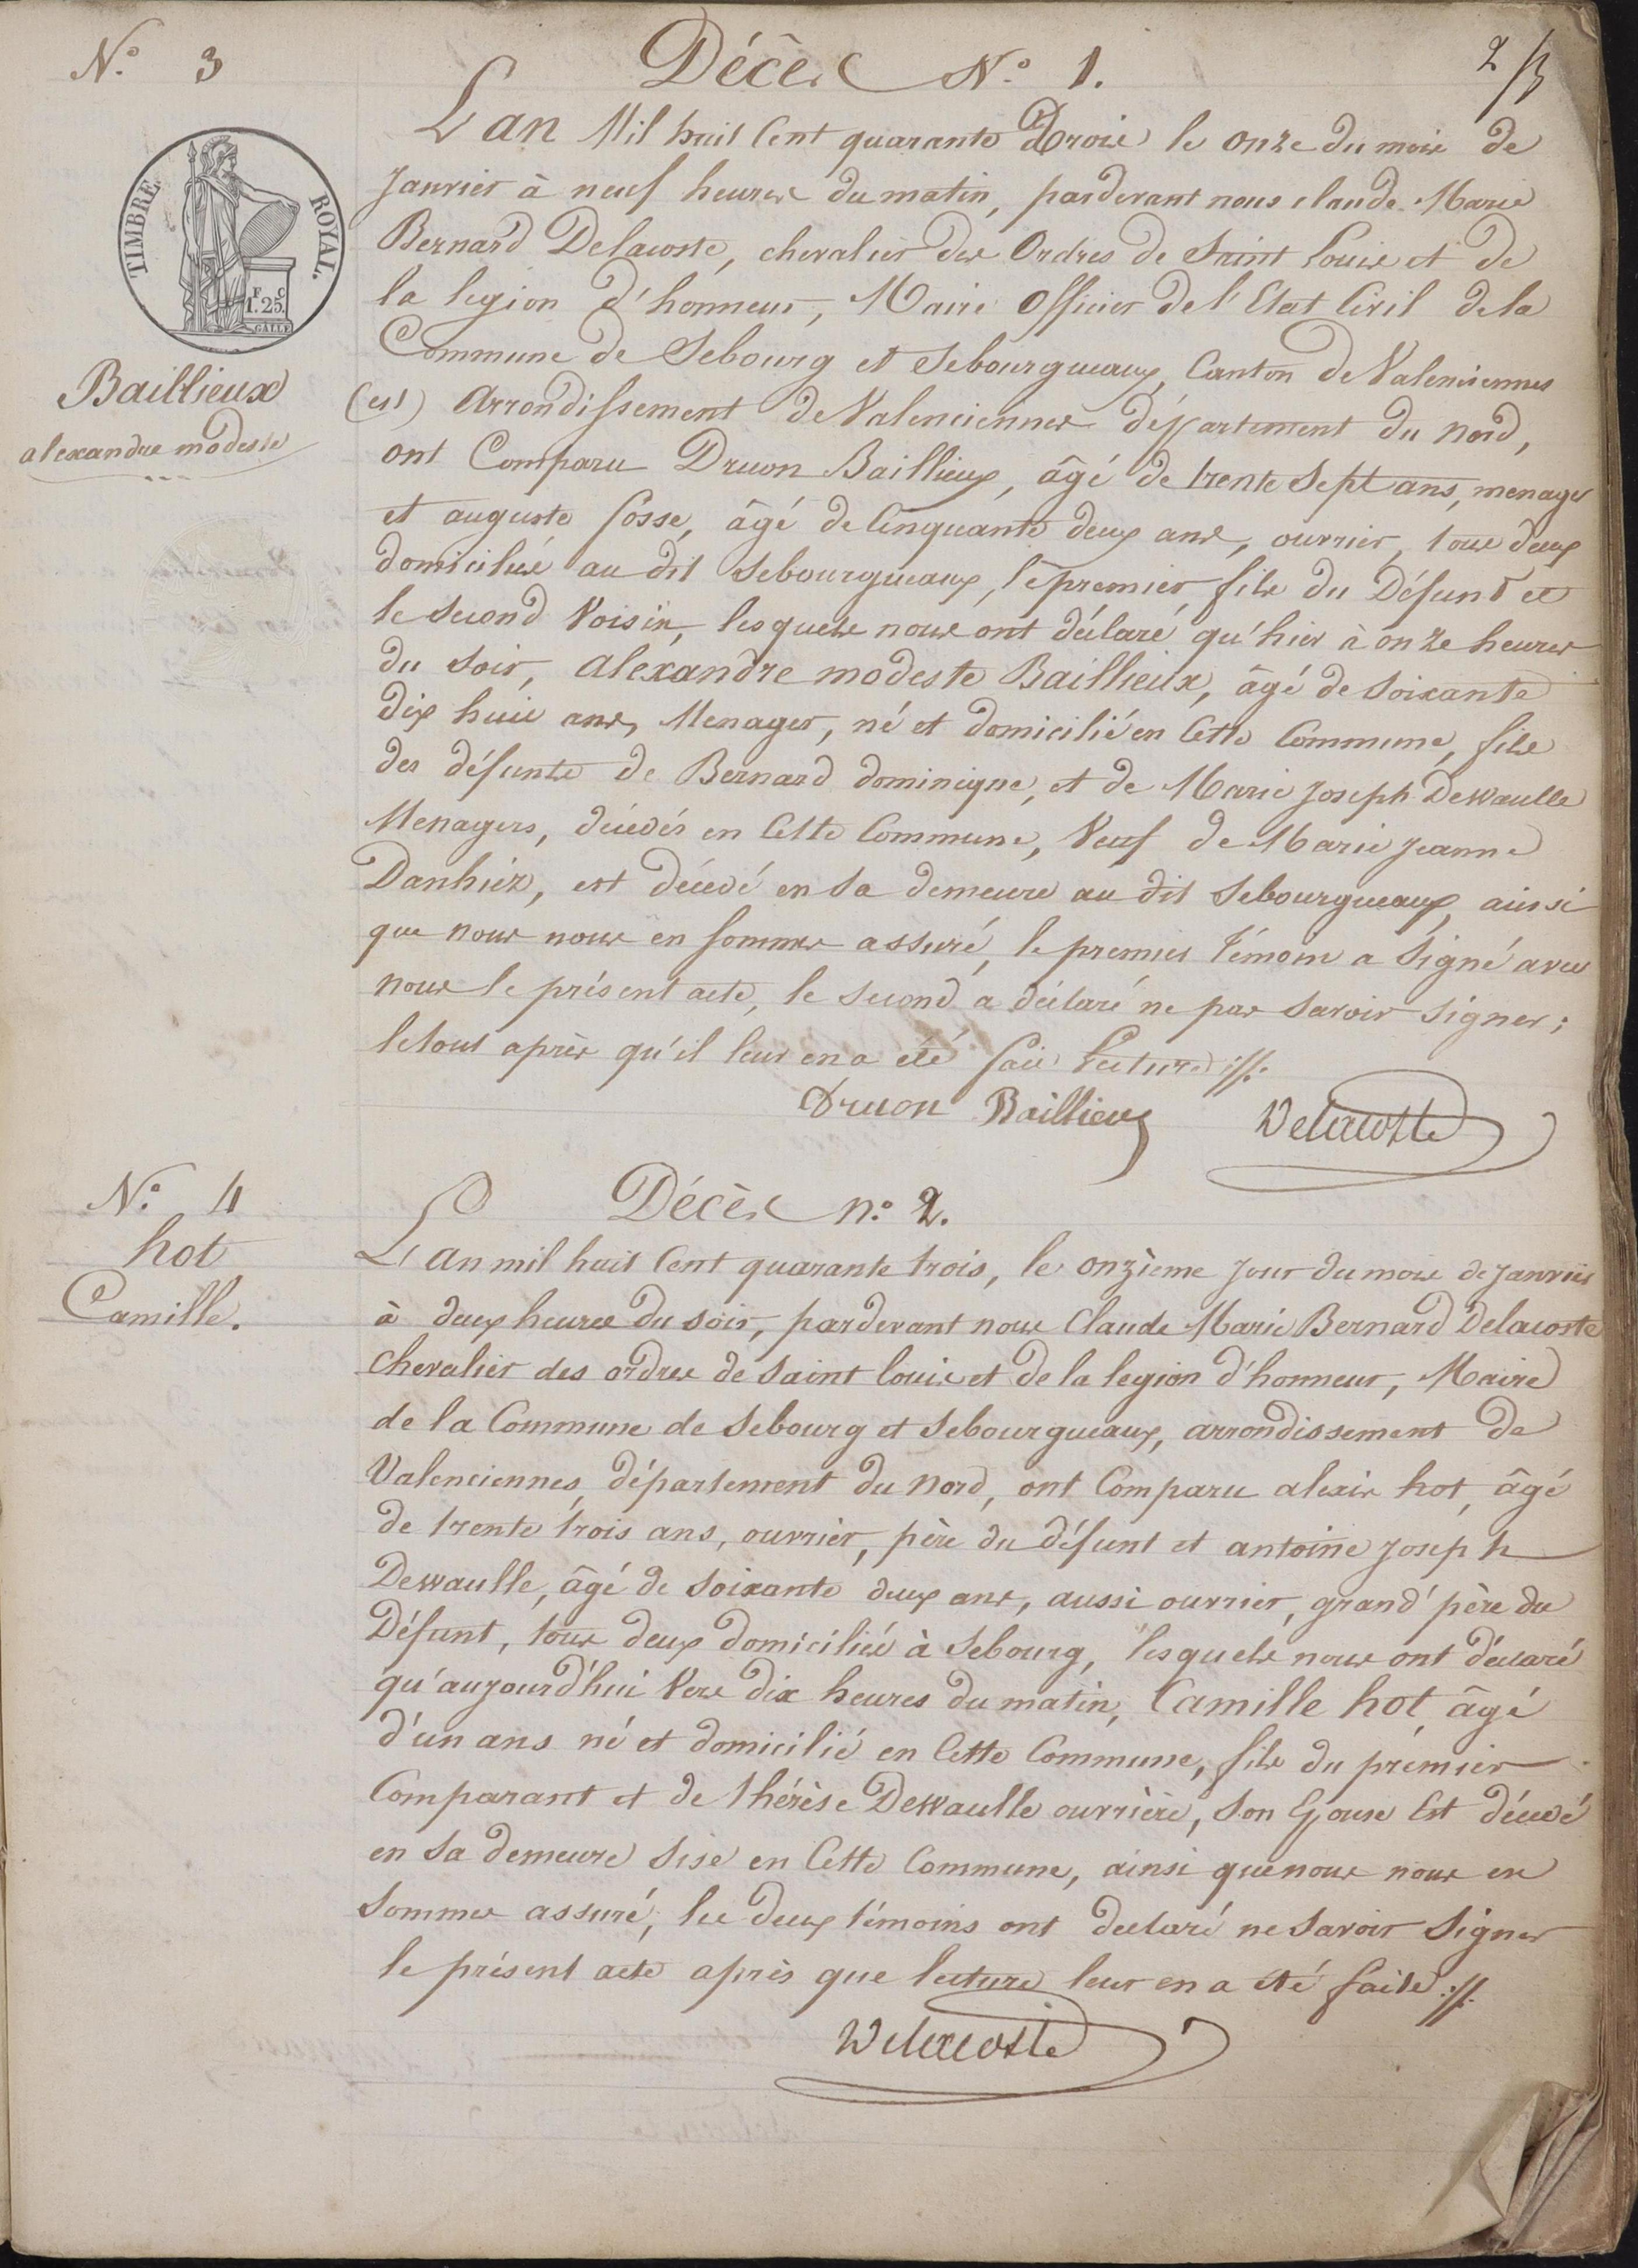 N.° 3
Décès N.° 1.
2
TIMBRE ROYAL.
F. C
1.25.
GALLE
Baillieux
alexandre modeste
L'an Mil huit Cent quarante Trois le onze du mois de
Janvier à neuf heures du matin, pardevant nous claude Marie
Bernard Delacoste, chevalier des Ordres de Saint Louis et de
la legion d'honneur, Maire Officier de l'Etat Civil de la
Commune de Sebourg et Sebourgueaux, Canton de Valenciennes
(est) Arrondissement de Valenciennes département du nord,
ont Comparu Druon Baillieux, âgé de trente Sept ans, menager
et auguste fosse, âgé de Cinquante deux ans, ouvrier, tous deux
domiciliés au dit Sebourgueaux, le premier fils du Défunt et
le second Voisin, lesquels nous ont déclaré qu'hier à onze heures
du soir, alexandre modeste Baillieux, âgé de soixante
dix huit ans, Menager, né et domicilié en Cette Commune, fils
des défunts de Bernard dominique, et de Marie Joseph Dewaulle
Menagers, décédés en Cette Commune, Veuf de Marie Jeanne
Danhiez, est décédé en sa demeure au dit Sebourgueaux, ainsi
que nous nous en sommes assuré, le premier témoin a signé avec
nous le présent acte, le second a déclaré ne pas savoir signer;
le tout après qu'il leur en a été fait Lecture ./.
Druon Baillieux Delacoste
N.° 4
hot
Camille.
Décès n.° 2.
L'an mil huit Cent quarante trois, le onzième jour du mois de Janvier
à deux heures du soir, pardevant nous Claude Marie Bernard Delacoste
Chevalier des ordres de Saint louis et de la legion d'honneur, Maire
de la Commune de Sebourg et Sebourgueaux, arrondissement de
Valenciennes, département du nord, ont Comparu alexis hot, âgé
de trente trois ans, ouvrier, père du défunt et antoine joseph
Dewaulle, âgé de soixante deux ans, aussi ouvrier, grand'père du
Défunt, tous deux domiciliés à Sebourg, lesquels nous ont déclaré
qu'aujourd'hui Vers dix heures du matin, Camille hot, âgé
d'un ans né et domicilié en Cette Commune, fils du premier
Comparant et de thérèse Dewaulle ouvrière, son Epouse Est décédé
en sa demeure sise en Cette Commune, ainsi que nous nous en
sommes assuré, les deux témoins ont declaré ne savoir signer
le présent acte après que lecture leur en a été faite ./.
Delacoste